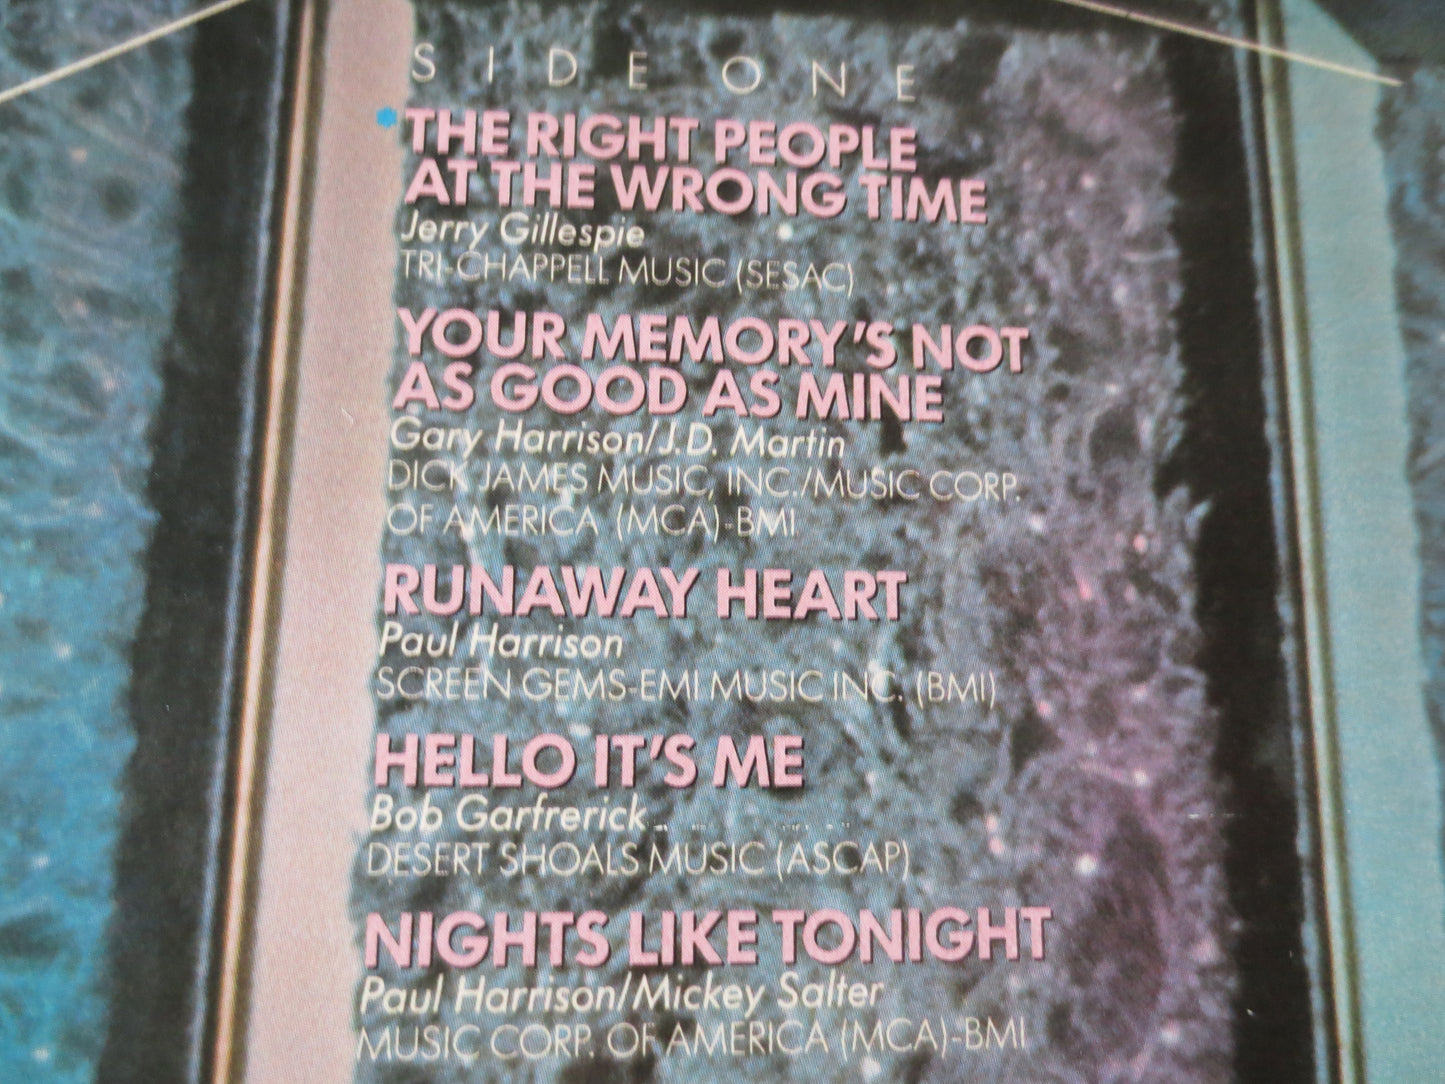 SIDE ONE
THE RIGHT PEOPLE
AT THE WRONG TIME
Jerry Gillespie
TRI-CHAPPELL MUSIC (SESAC)
YOUR MEMORY'S NOT
AS GOOD AS MINE
Gary Harrison/J.D. Martin
DICK JAMES MUSIC, INC./MUSIC CORP.
OF AMERICA (MCA)-BMI
RUNAWAY HEART
Paul Harrison
SCREEN GEMS-EMI MUSIC INC. (BMI)
HELLO IT'S ME
Bob Garfrerick
DESERT SHOALS MUSIC (ASCAP)
NIGHTS LIKE TONIGHT
Paul Harrison/Mickey Salter
MUSIC CORP. OF AMERICA (MCA)-BMI